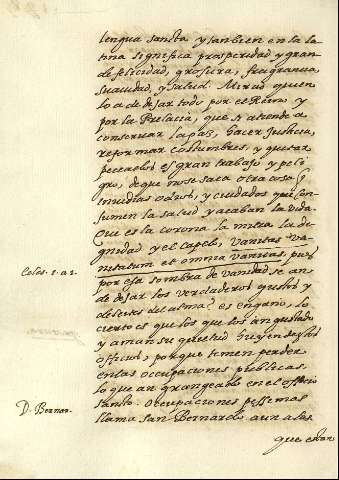 lengua sancta y tanbien en la la
tina significa prosperidad y gran
de felicidad, grosura, fragrancia
suauidad, y salud. Mirad quien
lo a de dejar todo por el Reino y
por la Prelacia, que si atiende a
conseruar la paz, hacer justicia,
reformar costumbres, y quitar
peccados es gran trabajo y peli
gro, de que no se saca otra cosa
inuidias odios, y cuidados que con
sumen la salud y acaban la vida.
Que es la corona la mitra la di
gnidad y el capelo, vanitas va
nitatum et omnia vanitas, pues
por esa sombra de vanidad se an
de dejar los verdaderos gustos y
deleites del alma? es engaño. lo
cierto es que los que los an gustado
y aman su quietud huyen destos
officios, porque temen perder
en las occupaciones publicas
lo que an grangeado en el
santo. Occupaciones pessimas
llama san Bernardo aun a las
que
Coles. 1. a 2.
D. Bernar.